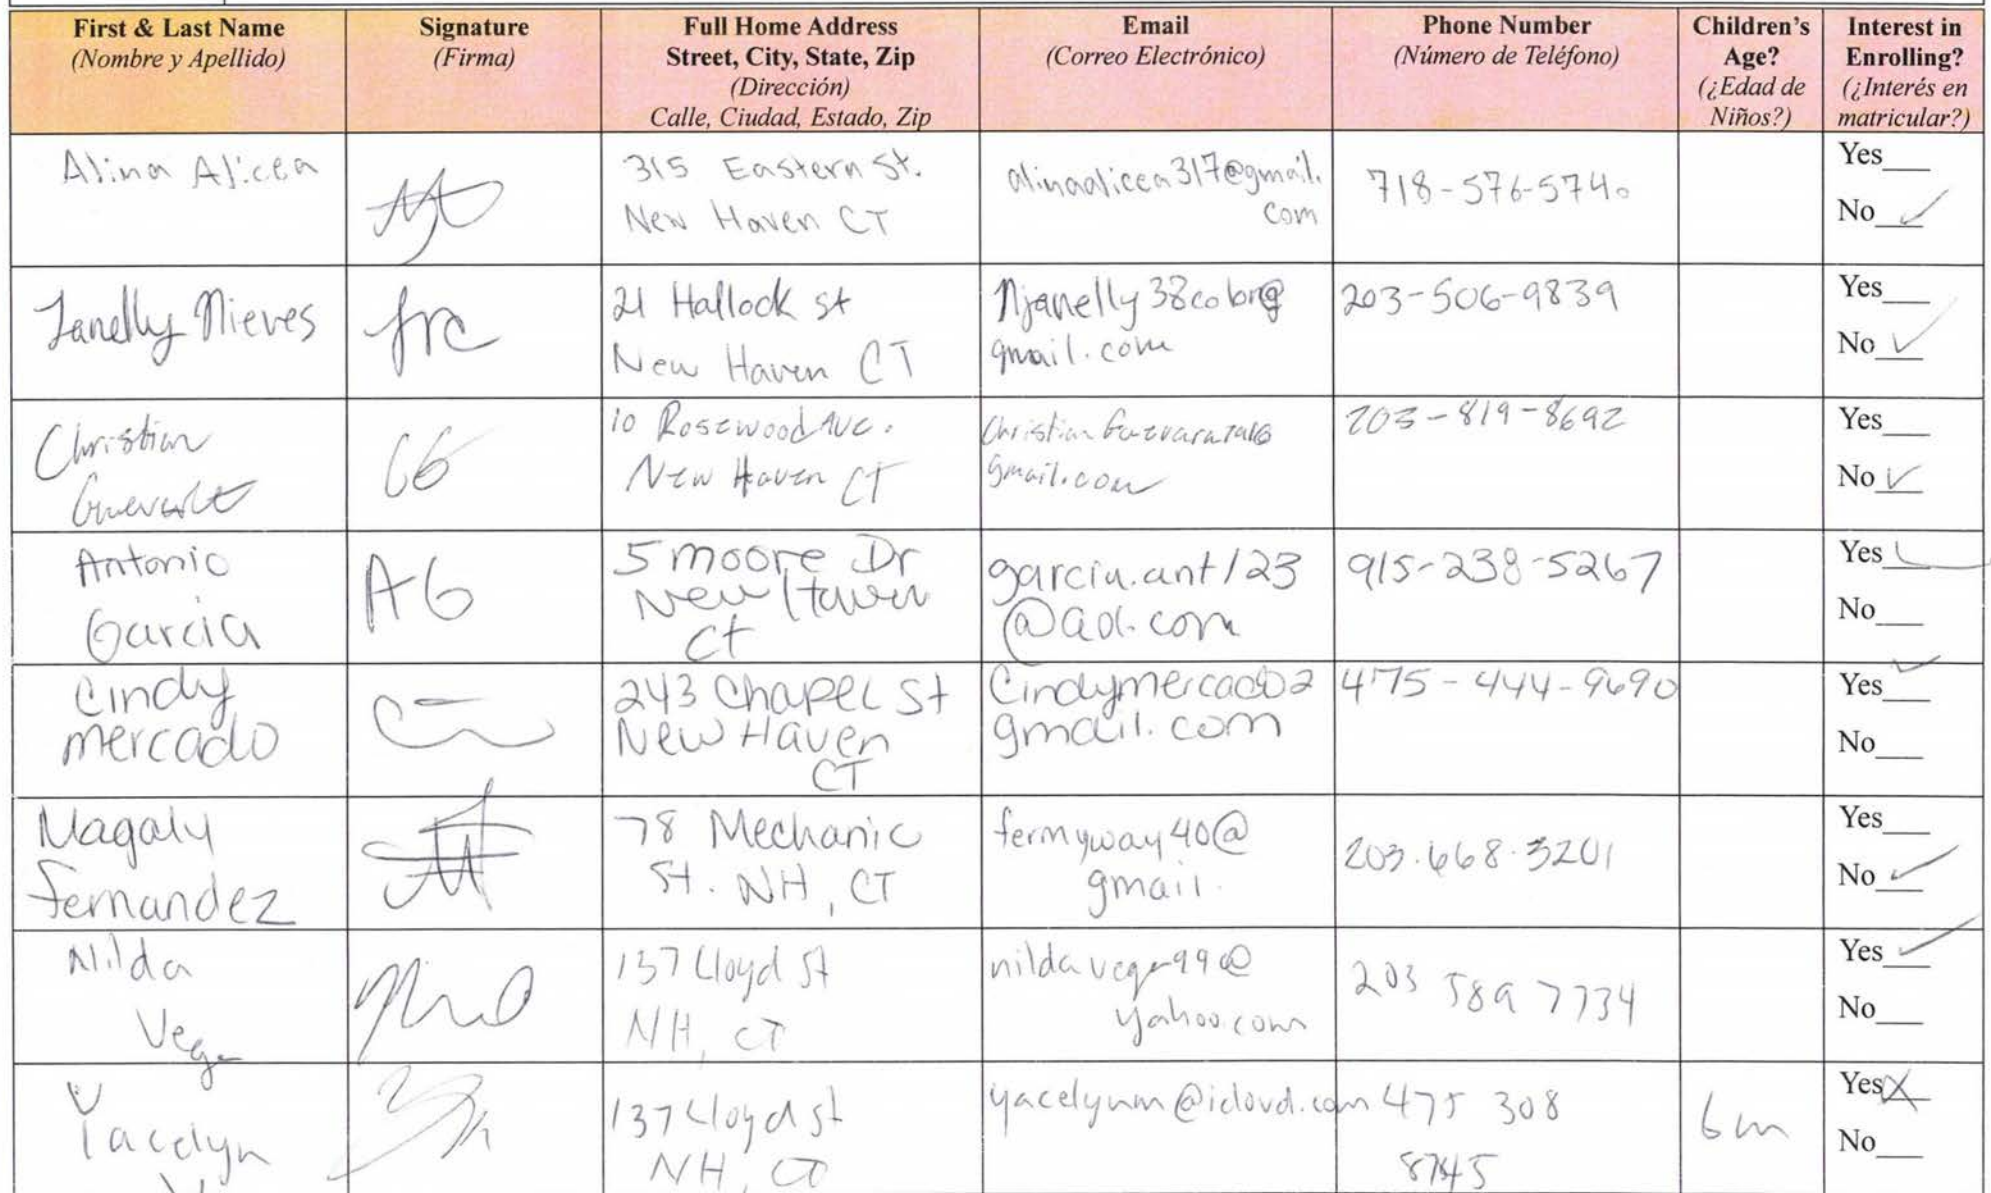 First & Last Name
(Nombre y Apellido)
Signature
(Firma)
Full Home Address
Street, City, State, Zip
(Dirección)
Calle, Ciudad, Estado, Zip
Email
(Correo Electrónico)
Phone Number
(Número de Teléfono)
Children's
Age?
(¿Edad de
Niños?)
Interest in
Enrolling?
(¿Interés en
matricular?)
Alina Alicea
315 Eastern St.
New Haven CT
alinaalicea317@gmail.
com
718-576-5740
Yes
No ✓
Janelly Nieves
21 Hallock st
New Haven CT
Njanelly38
gmail.com
203-506-9839
Yes
No ✓
Christian
10 Rosewood Ave.
New Haven CT
gmail.com
203-819-8692
Yes
No ✓
Antonio
Garcia
AG
5 moore Dr
New Haven
Ct
garcia.ant123
@aol.com
915-238-5267
Yes ✓
No
Cindy
mercado
243 Chapel St
New Haven
CT
Cindymercado2
gmail.com
475-444-9690
Yes ✓
No
Magaly
Fernandez
78 Mechanic
St. NH, CT
fermyway40@
gmail.
203.668.3201
Yes
No ✓
Nilda
Vega
137 Lloyd St
NH, CT
nildavega99@
yahoo.com
203 589 7734
Yes ✓
No
Yacelyn
137 Lloyd st
NH, CT
yacelynm@icloud.com
475 308
8745
6m
Yes X
No